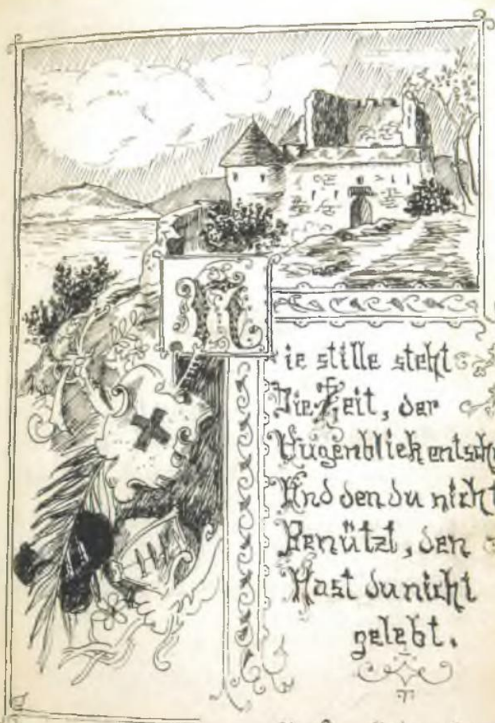 Nie stille steht
Die Zeit, der
Augenblick entschw
Und den du nicht
Benützt, den
Hast du nicht
gelebt.